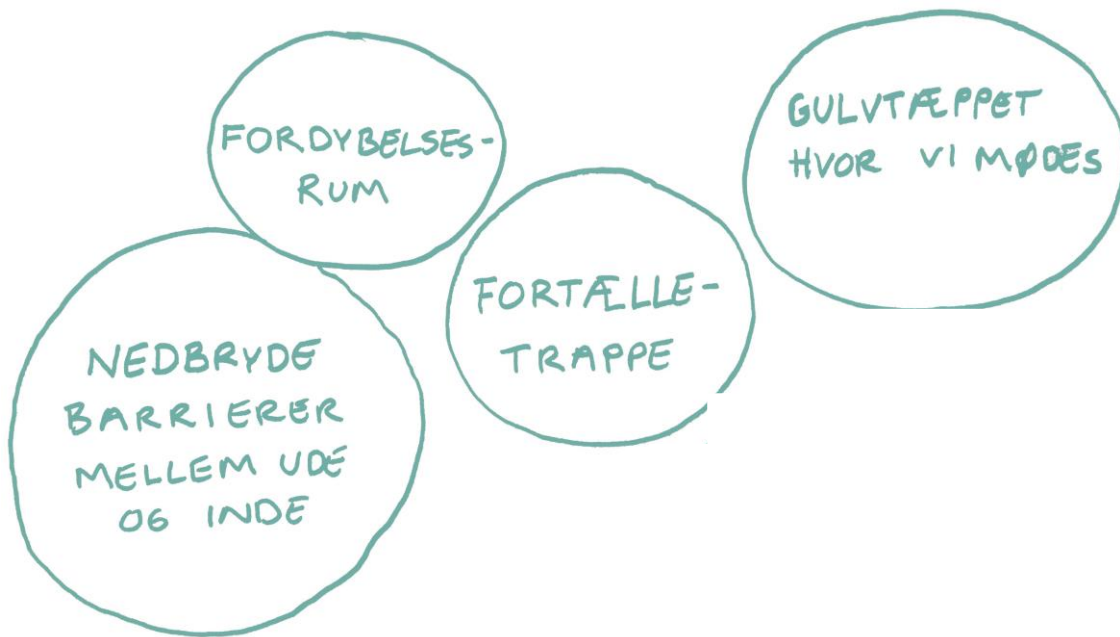 FORDYBELSES-
RUM
GULVTÆPPET
HVOR VI MØDES
FORTÆLLE-
TRAPPE
NEDBRYDE
BARRIERER
MELLEM UDE
OG INDE